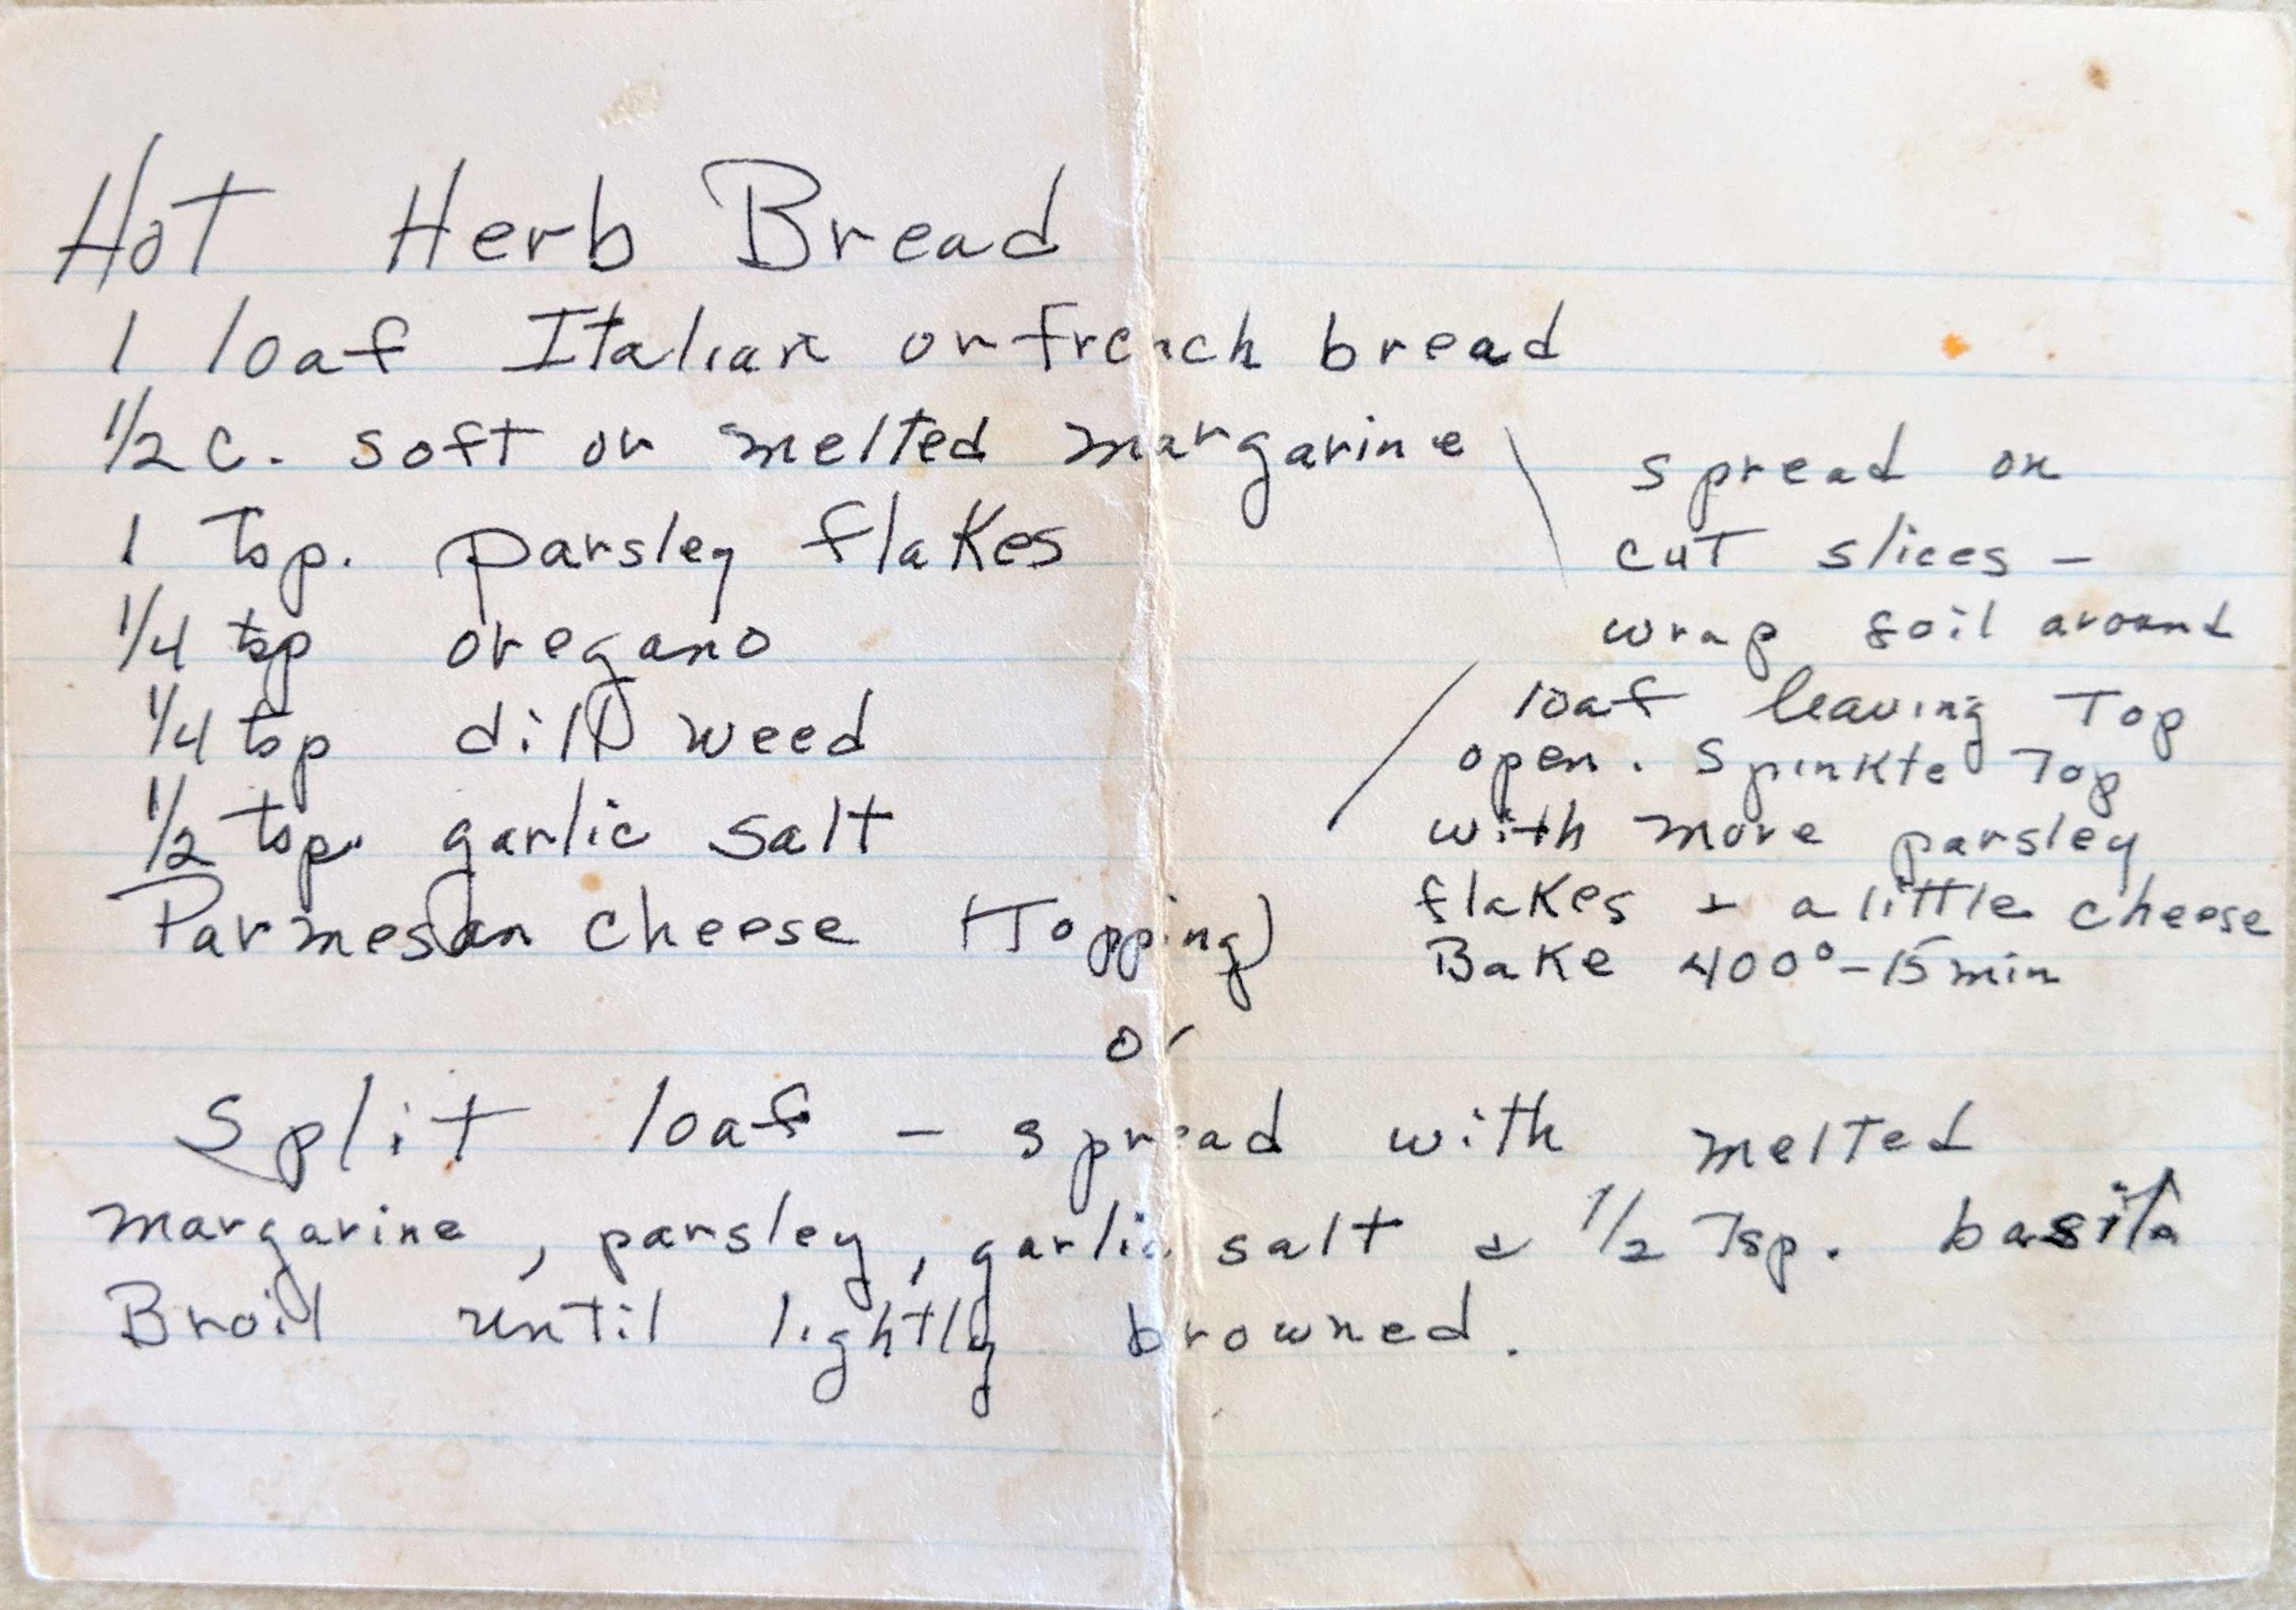 Hot Herb Bread
1 loaf Italian or french bread
1/2 c. soft or melted margarine
1 Tsp. parsley flakes
1/4 tsp oregano
1/4 tsp dill weed
1/2 tsp. garlic salt
Parmesan cheese (Topping)
spread on
cut slices -
wrap foil around
loaf leaving Top
open. Spinkle Top
with more parsley
flakes + a little cheese
Bake 400° - 15 min
or
Split loaf - spread with melted
margarine, parsley, garlic salt & 1/2 Tsp. basil
Broil until lightly browned.